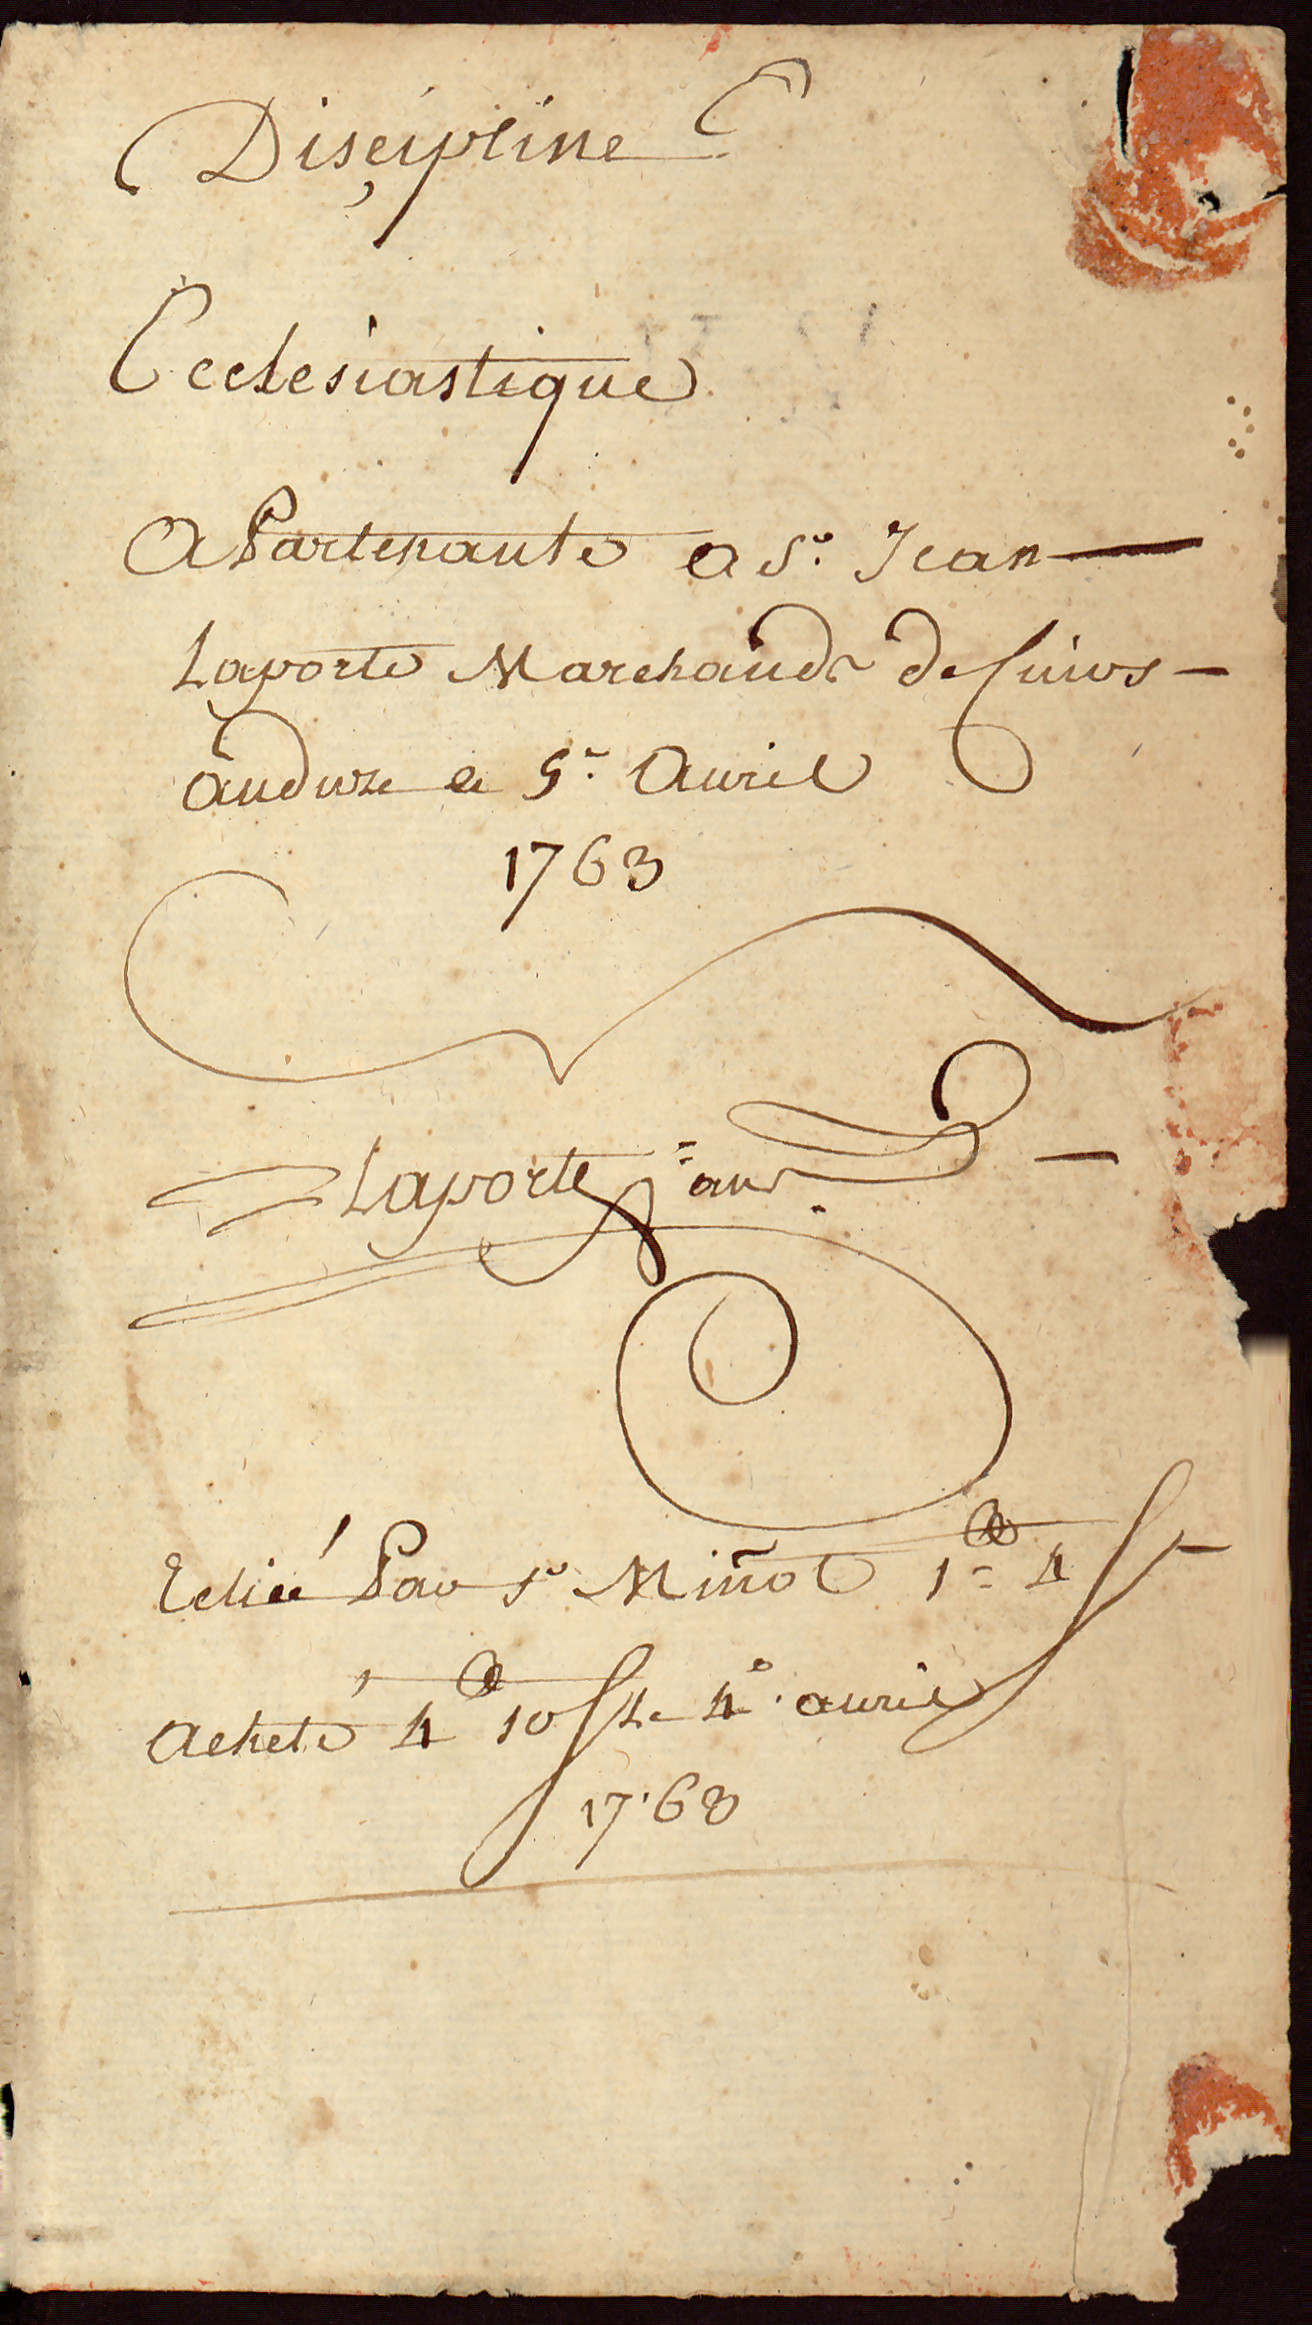 Discipline
Ecclesiastique
Apartenante a Sr. Jean
Laporte Marchand de Cuirs
5e. Auril
1763
Laporte
Relié Par Sr Miñot 1 = 4
Acheté 4 10 Le 4e. auril
1763